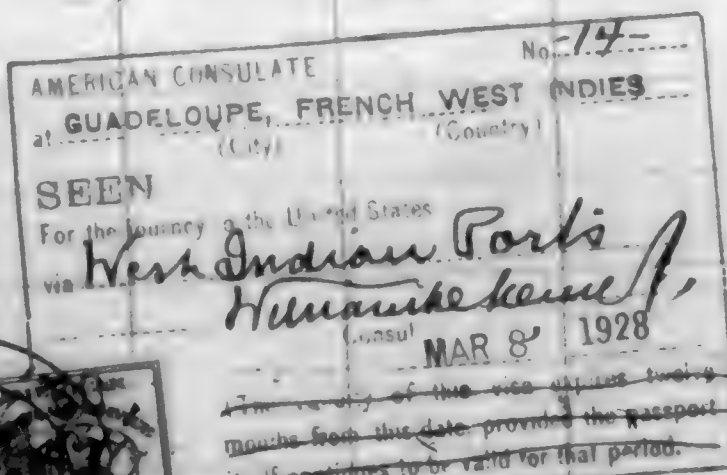 No. -14-
AMERICAN CONSULATE
at GUADELOUPE, FRENCH WEST INDIES
(City) (Country)
SEEN
For the journey to the United States
via West Indian Ports
Consul
MAR 8 1928
The validity of this visa expires twelve
months from this date provided the passport
itself continues to be valid for that period.